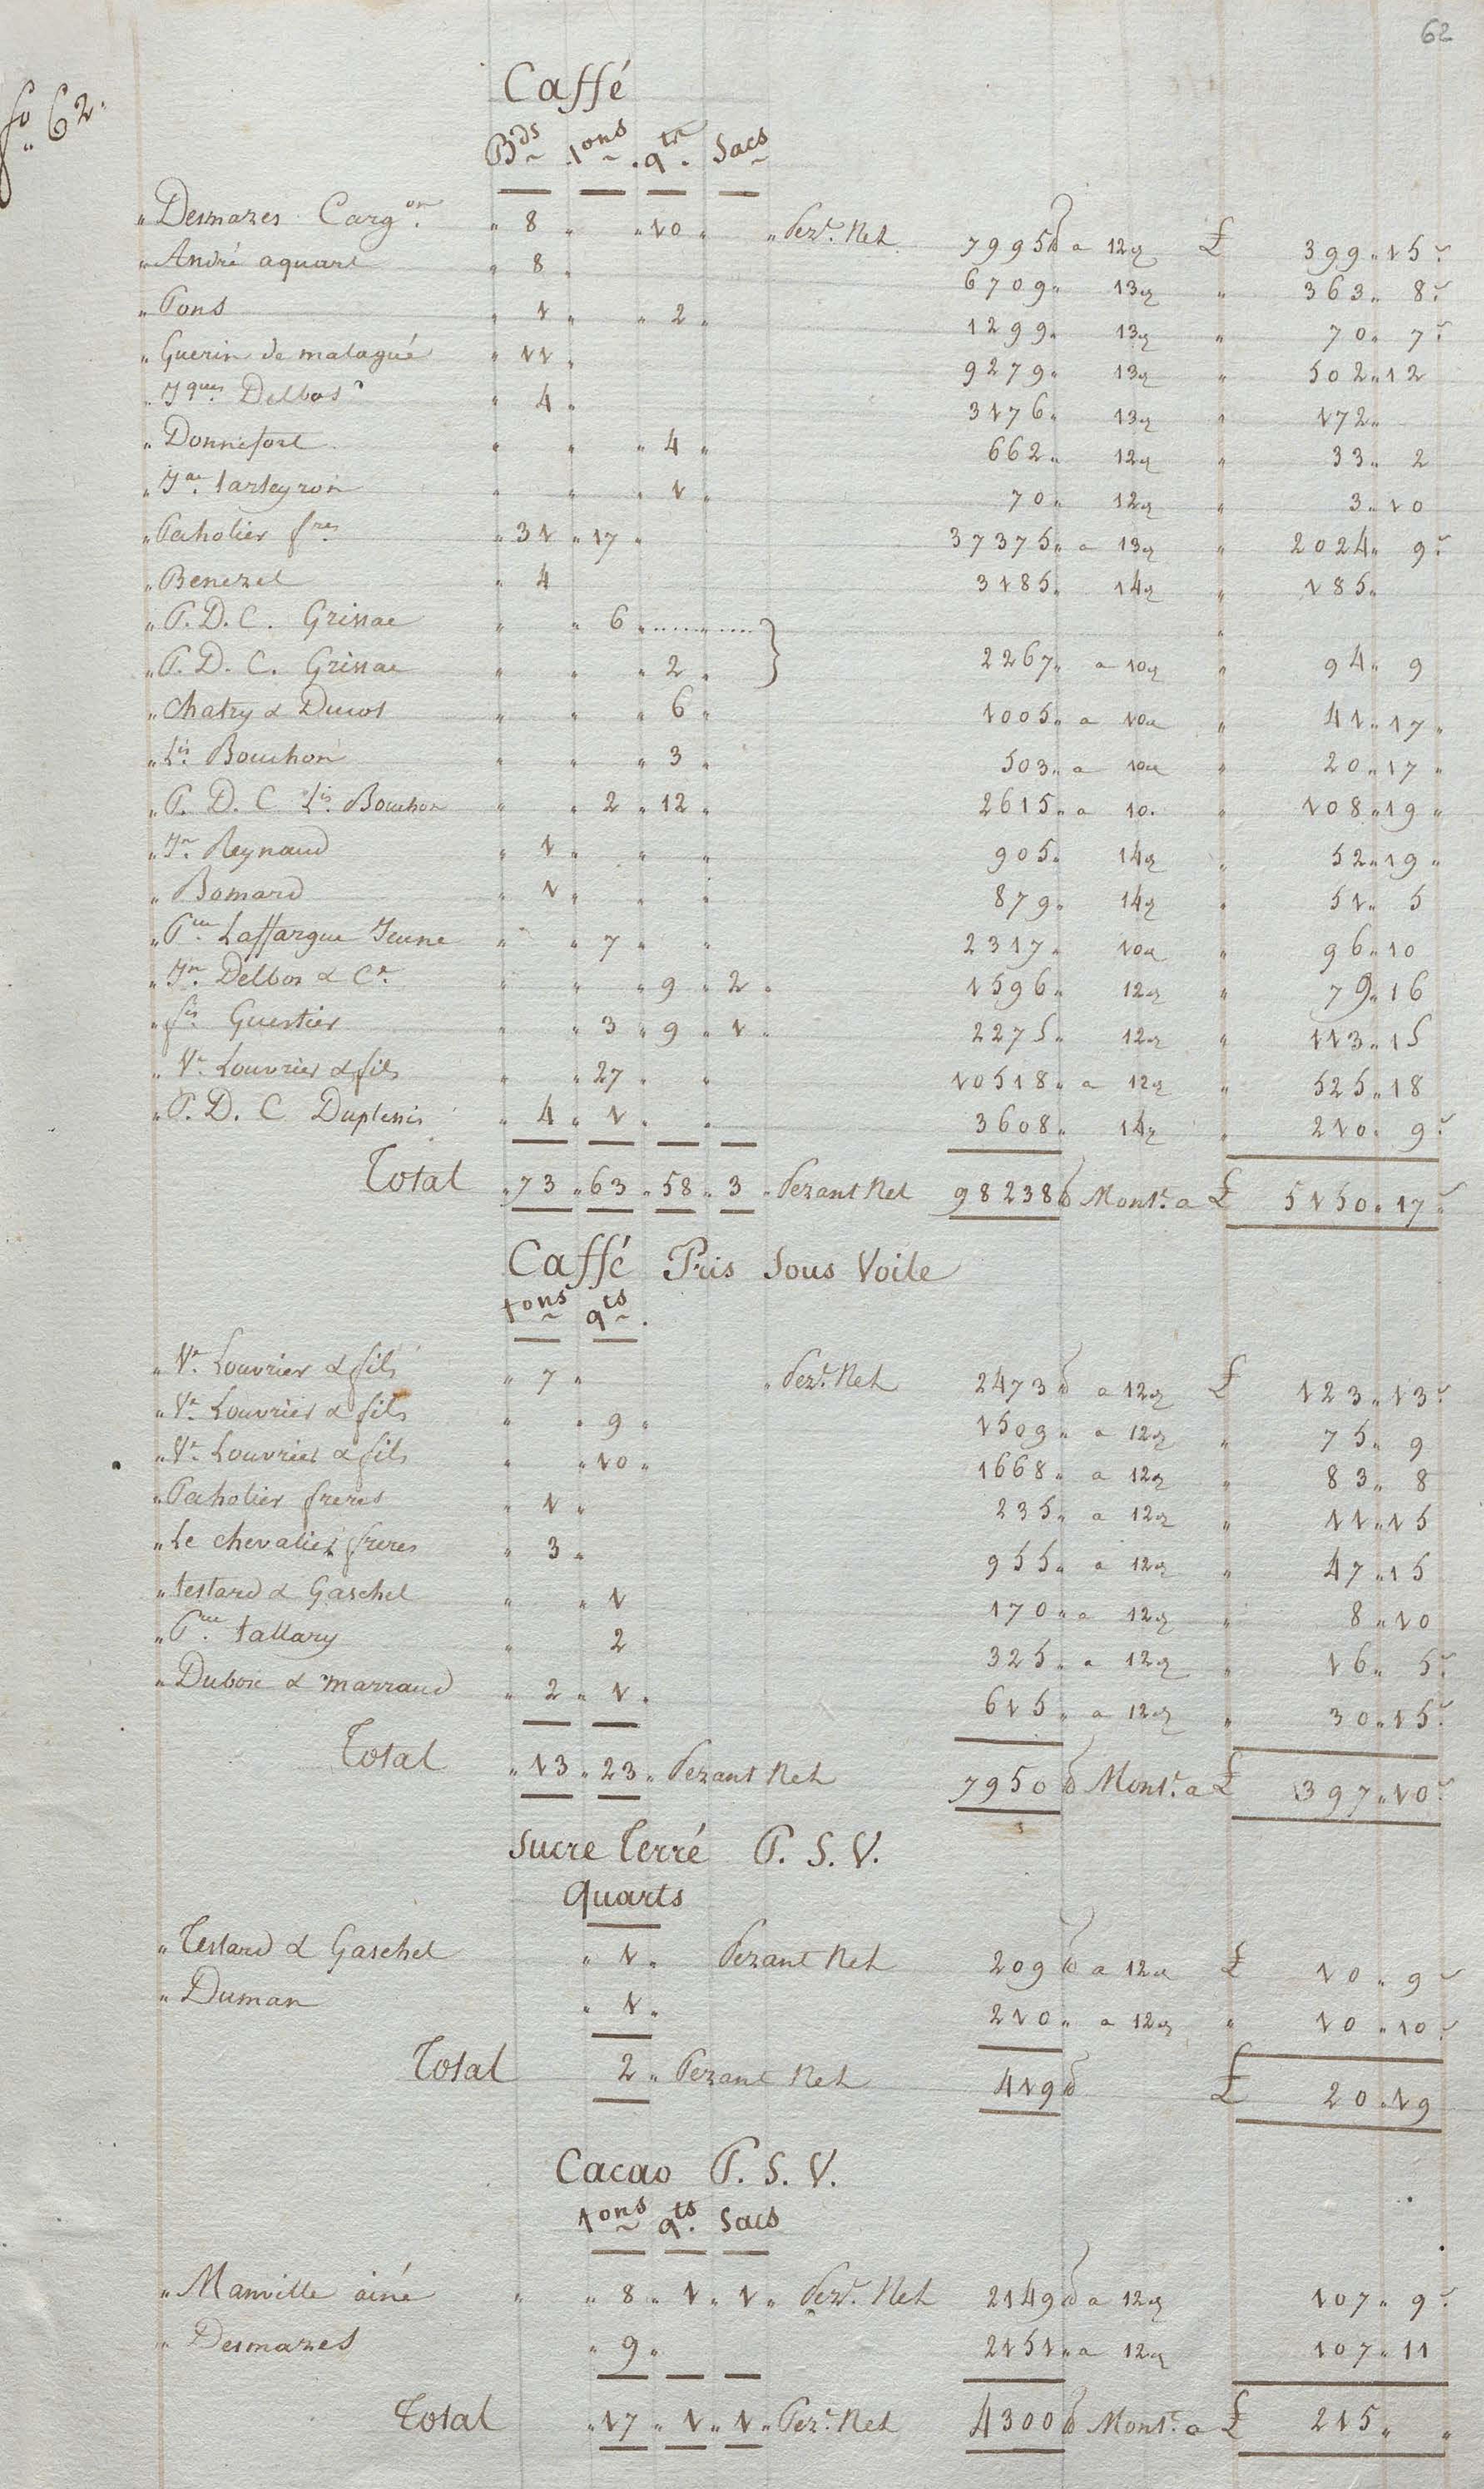 62
fo 62.
Caffé
Bds tons qts Sacs
" Desmazes Cargon " 8 " " 10 " " Pezt. Net 7995 lb a 12 £ 399 " 15 s
" André aquart " 8 " 6709 " 13 " 363 " 8 s
" Pons " 1 " " 2 " 1299 " 13 " 70 " 7 s
" Guerin de malagué " 11 " 9279 " 13 " 502 " 12
" Jques Delbos " 4 " 3176 " 13 " 172 "
" Donnefort " " " 4 " 662 " 12 " 33 " 2
" Jas tarteyron " " " 1 " 70 " 12 " 3 " 10
" Paholier fres " 31 " 17 " 37375 " a 13 " 2024 " 9 s
" Benezet " 4 3185 " 14 " 185 "
" P. D. C. Grissac " " 6 " ........ } "
" P. D. C. Grissac " " " 2 " 2267 " a 10 " 94 " 9
" Chatry & Ducot " " " 6 " 1005 " a 10 " 41 " 17 "
" Ls. Bouchon " " " 3 " 503 " a 10 " 20 " 17 "
" P. D. C Ls. Bouchon " " 2 " 12 " 2615 " a 10 " 108 " 19 "
" Jn. Reynaud " 1 " " " 905 " 14 " 52 " 19 "
" Bomard " 1 " " " 879 " 14 " 51 " 5
" Prre. Laffargue Jeune " " 7 " " 2317 " 10 " 96 " 10
" Jn. Delbos & Ce. " " " 9 " 2 " 1596 " 12 " 79 " 16
" fs. Guestier " " 3 " 9 " 1 " 2275 " 12 " 113 " 15
" Ve. Louvrier & fils " " 27 " " 10518 " a 12 " 525 " 18
" P. D. C Duplessis " 4 " 1 " " 3608 " 14 " 210 " 9 s
Total " 73 " 63 " 58 " 3 " Pezant Net 98238 lb Mont. a £ 5150 " 17 s
Caffé Pris Sous Voile
tons qts.
" Ve. Louvrier & fils " 7 " " Pezt. Net 2473 lb a 12 £ 123 " 13 s
" Ve. Louvrier & fils " " 9 " 1509 " a 12 " 75 " 9
" Ve. Louvrier & fils " " 10 " 1668 " a 12 " 83 " 8
" Paholier freres " 1 " 235 " a 12 " 11 " 15
" Le chevalier freres " 3 " 955 " a 12 " 47 " 15
" testard & Gaschet " " 1 170 " a 12 " 8 " 10
" Prre. tallary " 2 325 " a 12 " 16 " 5 s
" Dubois & marraud " 2 " 1 " 615 " a 12 " 30 " 15 s
Total " 13 " 23 " Pezant Net 7950 lb Mont. a £ 397 " 10 s
Sucre Terré P. S. V.
Quarts
" Testard & Gaschet " 1 " Pezant Net 209 lb a 12 £ 10 " 9 s
" Duman " 1 " 210 " a 12 " 10 " 10 s
Total 2 " Pezant Net 419 lb £ 20 " 19
Cacao P. S. V.
tons qts. Sacs
" Manville ainé " " 8 " 1 " 1 " Pezt. Net 2149 lb a 12 107 " 9 s
" Desmazes " 9 " 2151 " a 12 107 " 11
Total " 17 " 1 " 1 " Pezt. Net 4300 lb Mont. a £ 215 " "